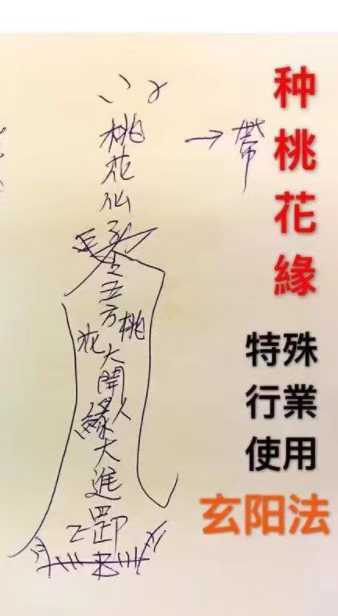 桃花仙
五方
桃花
大開
人緣
大進
罡印
→帶
种桃花緣
特殊
行業
使用
玄阳法